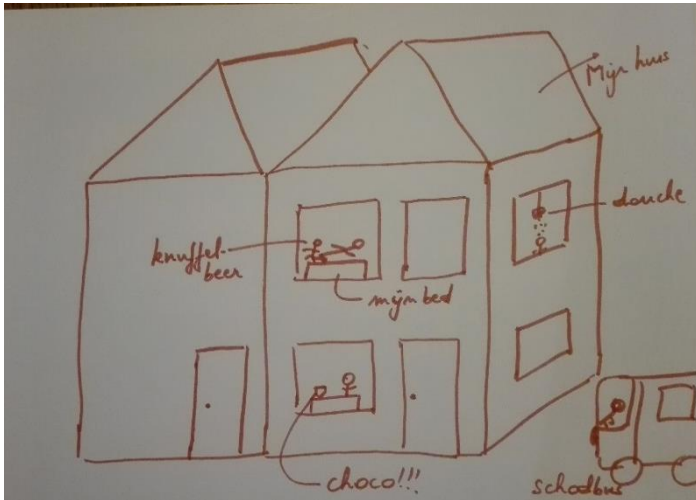 Mijn huis
douche
knuffel-
beer
mijn bed
choco!!!
schoolbus